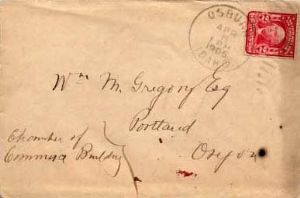 OSBURN
APR
1 PM
1905
IDAHO
Wm M. Gregory Esq
Portland
Oregon
Chamber of
Commerce Building